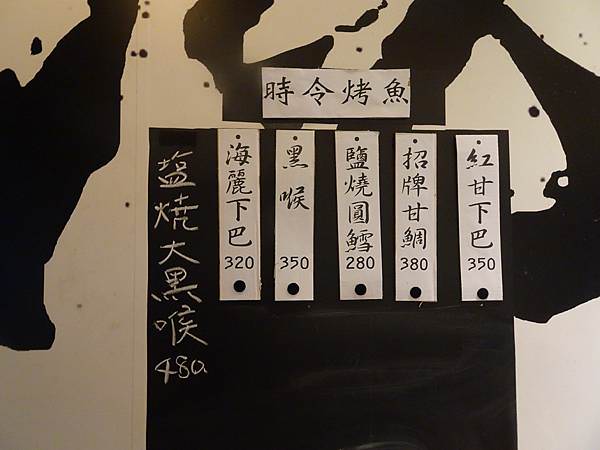 時令烤魚
紅甘下巴
350
招牌甘鯛
380
鹽燒圓鱈
280
黑喉
350
海麗下巴
320
塩焼大黒喉
480